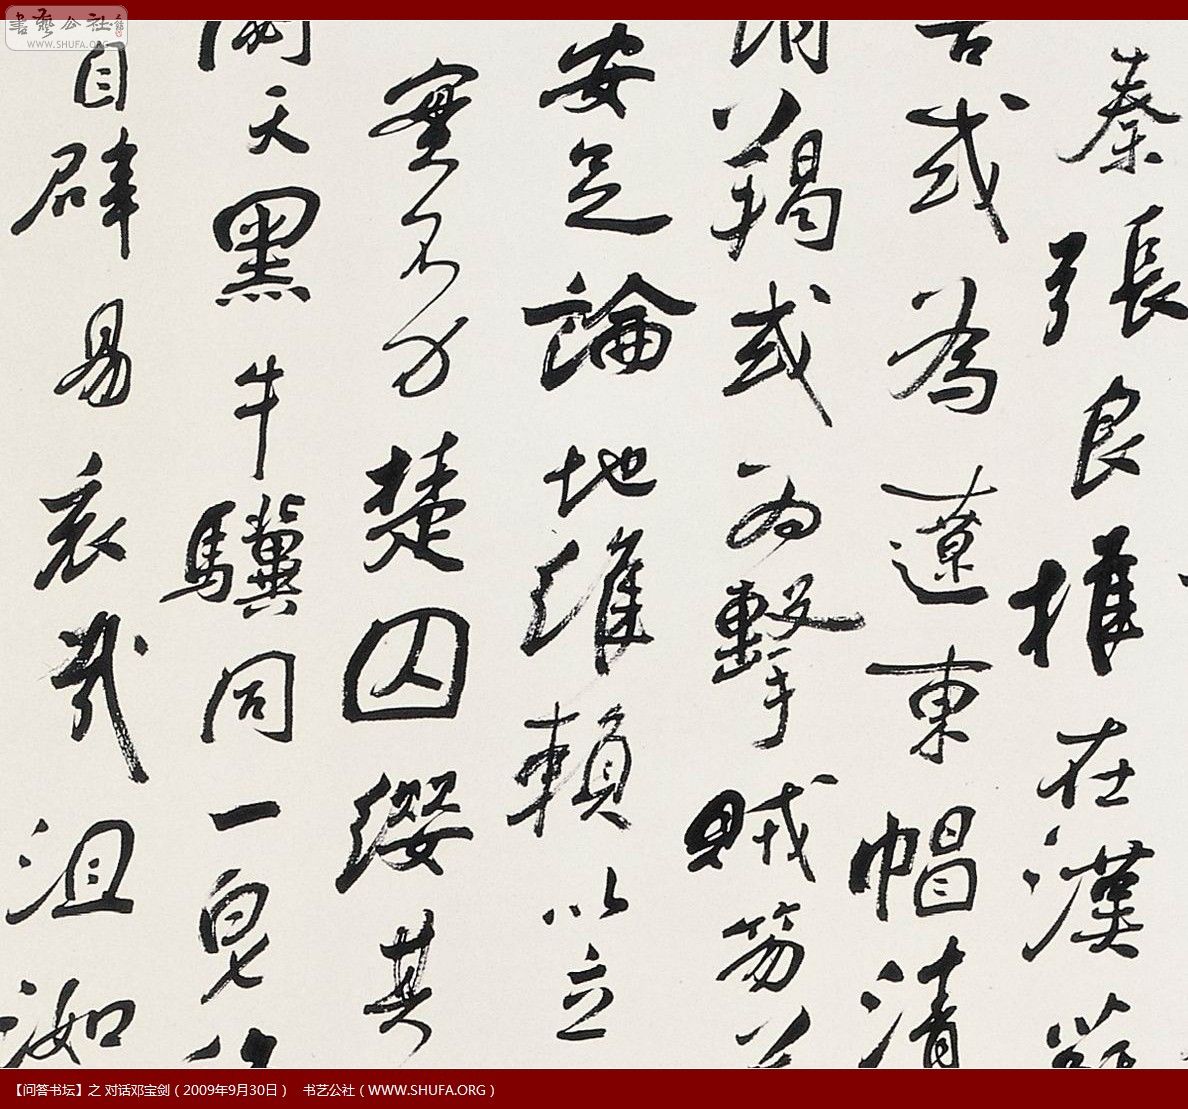 書藝公社
WWW.SHUFA.ORG
秦張良椎在漢蘇
舌或為遼東帽清
胡羯或為擊賊笏
安足論地維賴以立
實不力楚囚纓其
闃天黑牛驥同一皂
自辟易哀哉沮洳
【问答书坛】之 对话邓宝剑（2009年9月30日） 书艺公社（WWW.SHUFA.ORG）